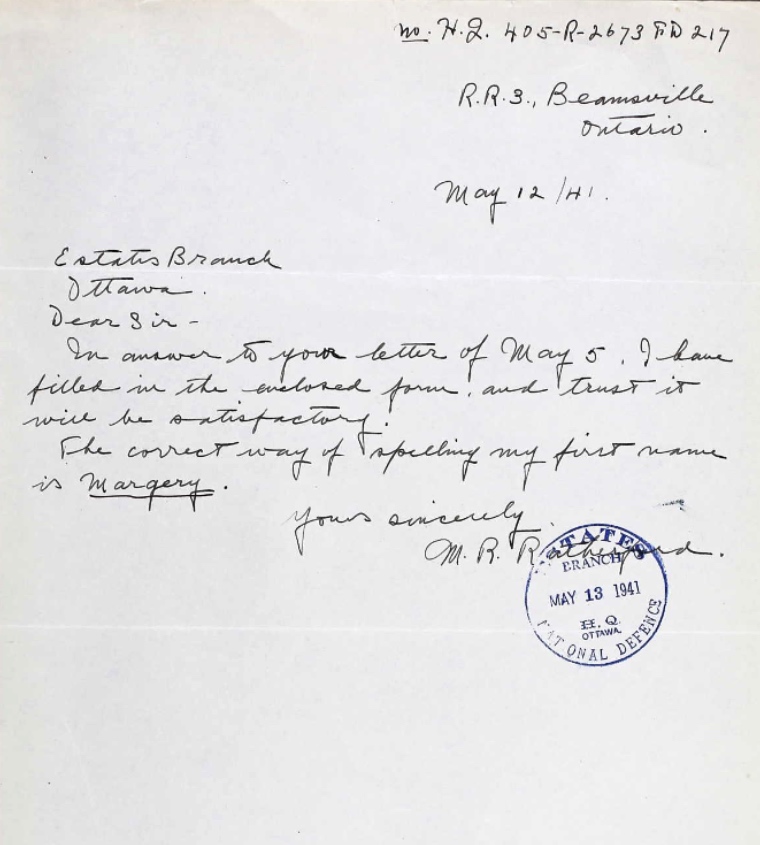 No. H.Q. 405-R-2673 FD 217
R.R.3., Beamsville
Ontario.
May 12/41.
Estates Branch
Ottawa.
Dear Sir -
In answer to your letter of May 5, I have
filled in the enclosed form, and trust it
will be satisfactory.
The correct way of spelling my first name
is Margery.
Yours sincerely,
M. R. Rutherford.
ESTATES
BRANCH
MAY 13 1941
H. Q.
OTTAWA.
NATIONAL DEFENCE